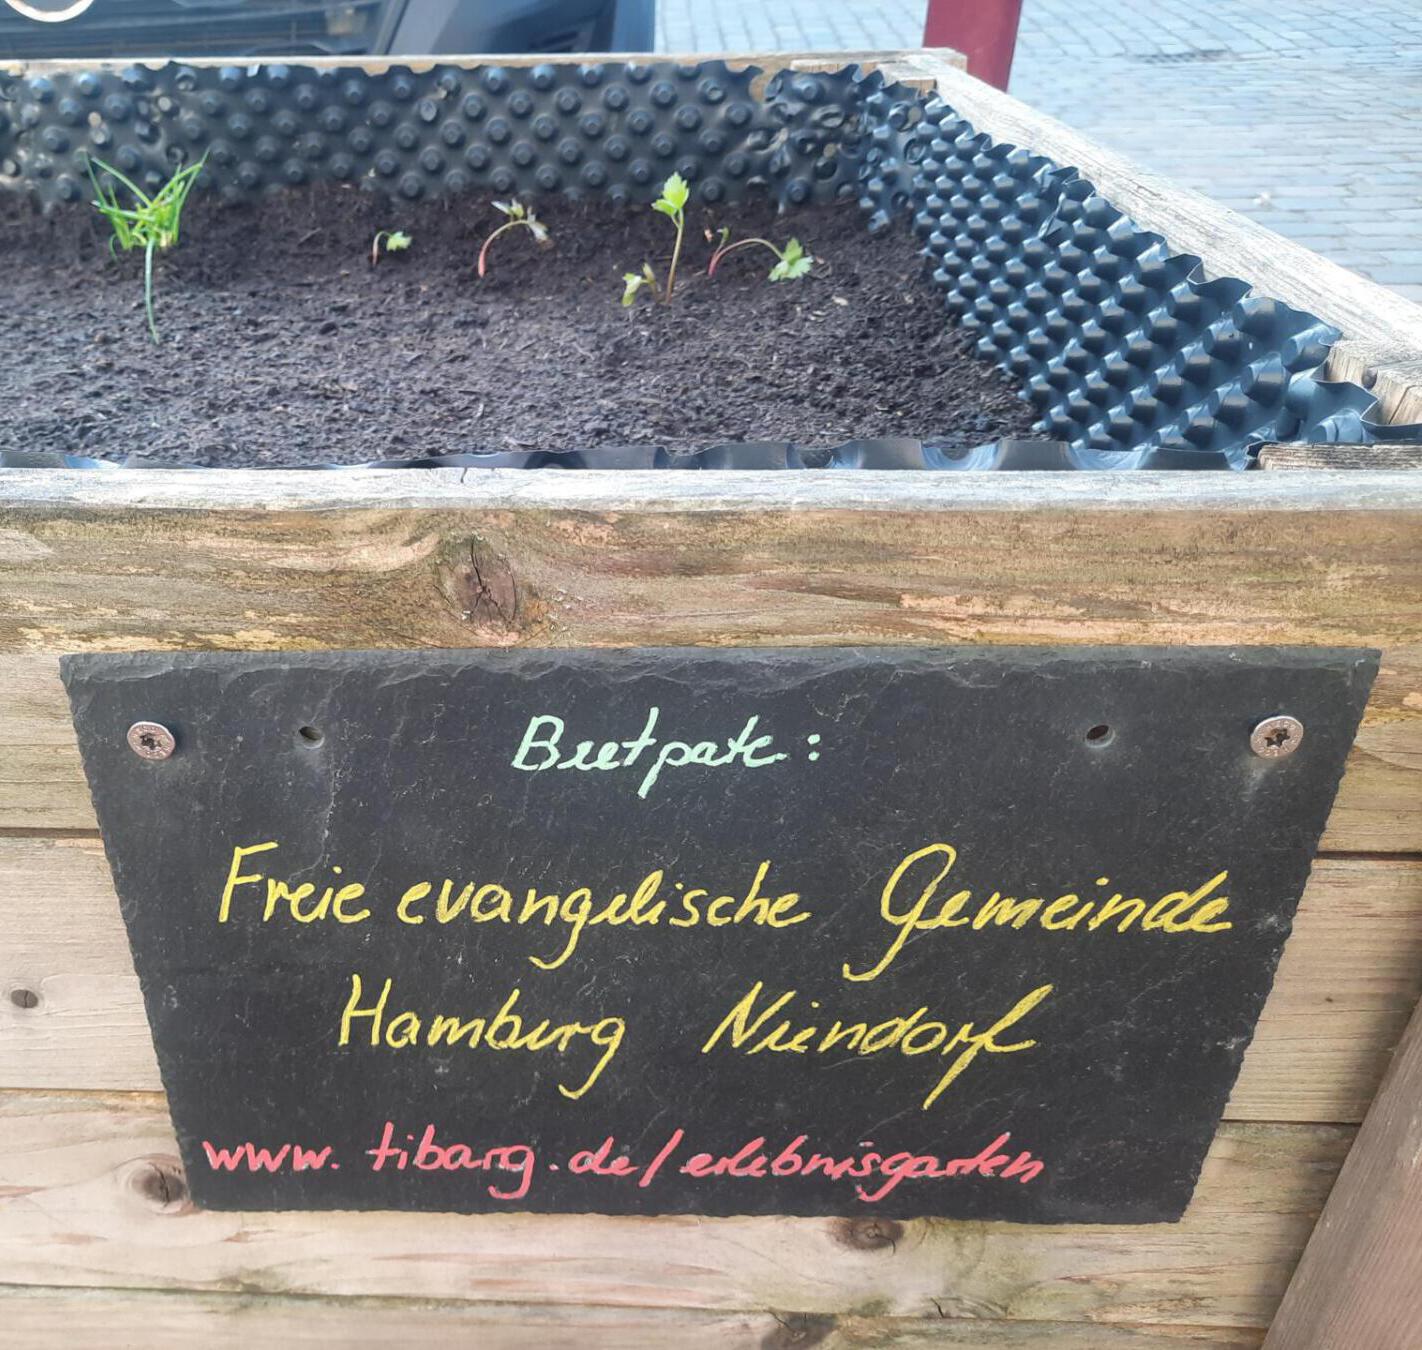 Beetpate:
Freie evangelische Gemeinde
Hamburg Niendorf
www.tibarg.de/erlebnisgarten